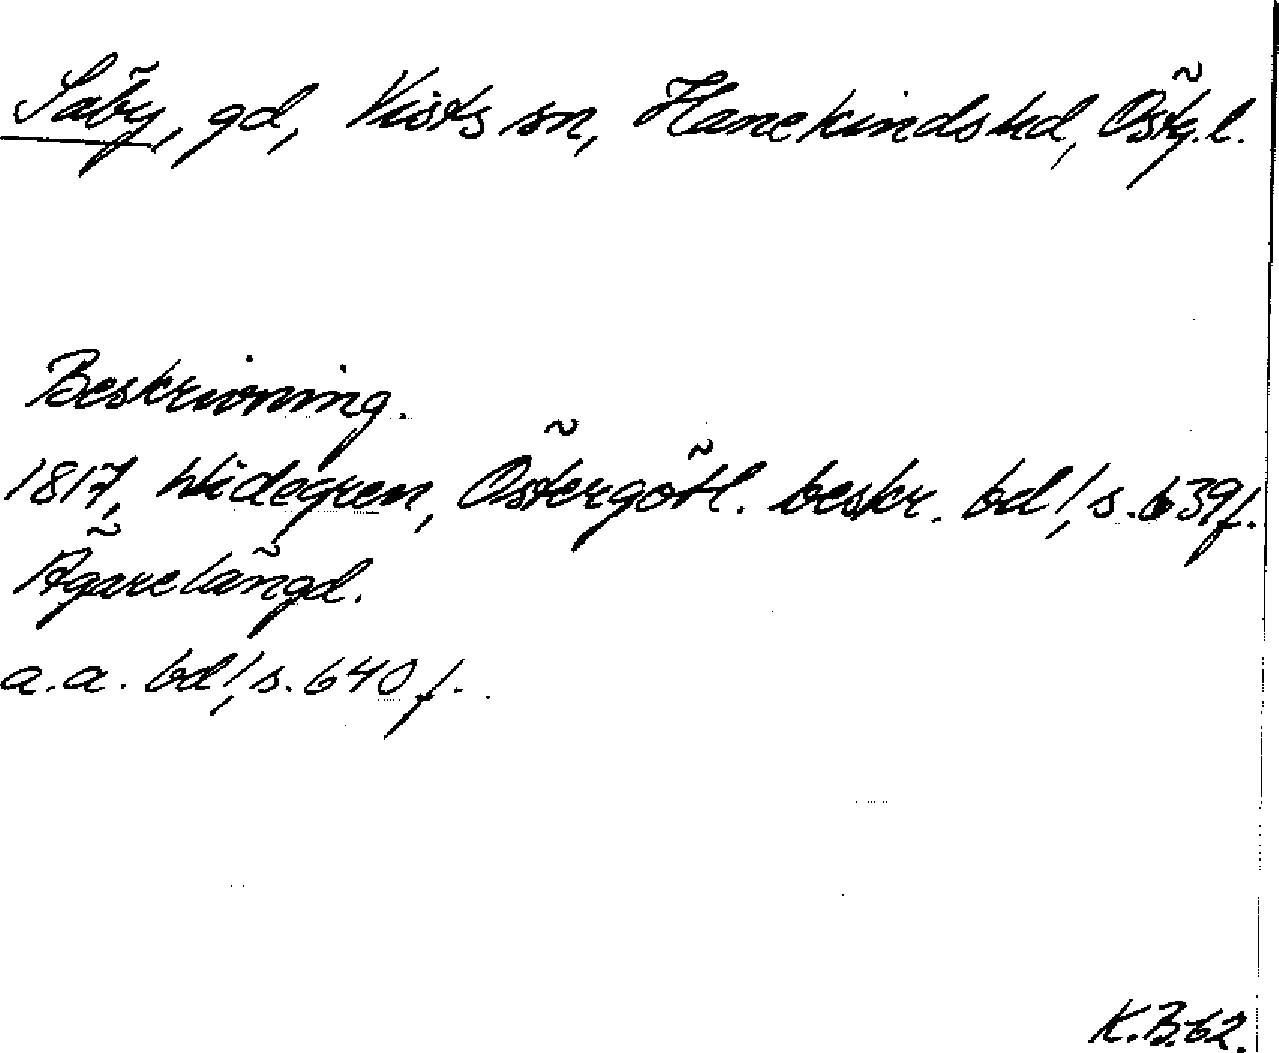 Säby, gd, Vists sn, Hanekinds hd, Östg.l.
Beskrivning.
1817, Widegren, Östergötl. beskr. bd 1, s. 639 f.
Ägarelängd.
a.a. bd 1, s. 640 f.
K.B. 62.